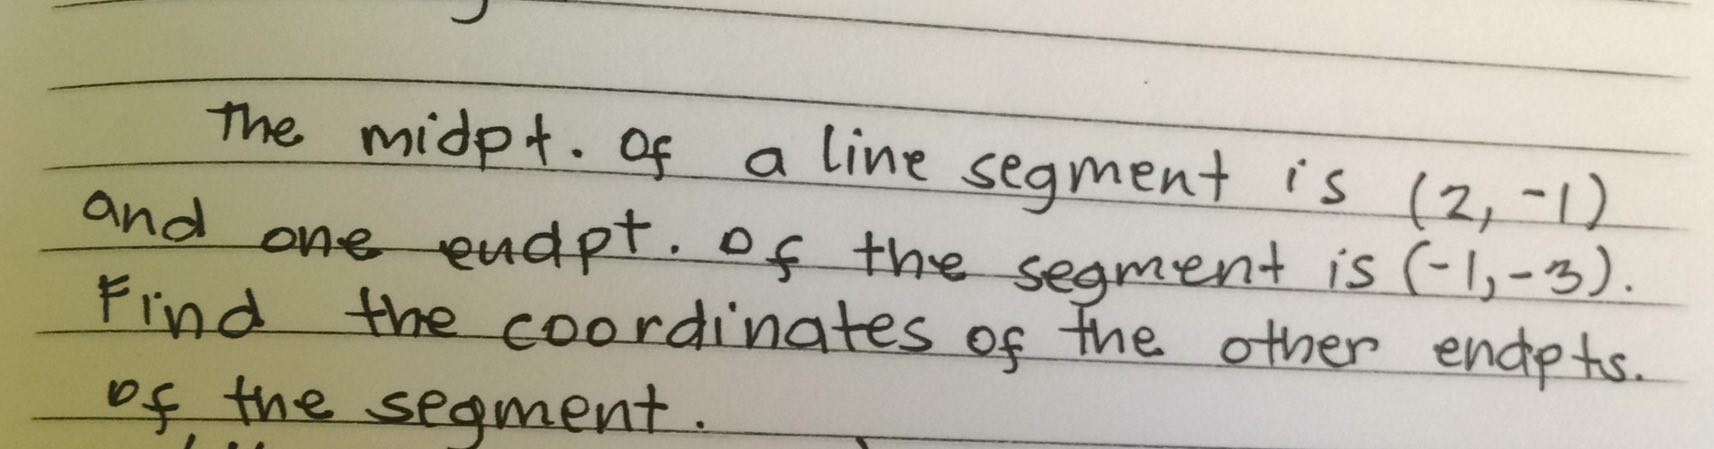 The midpt. of a line segment is (2, -1)
and one endpt. of the segment is (-1,-3).
Find the coordinates of the other endpts.
of the segment.